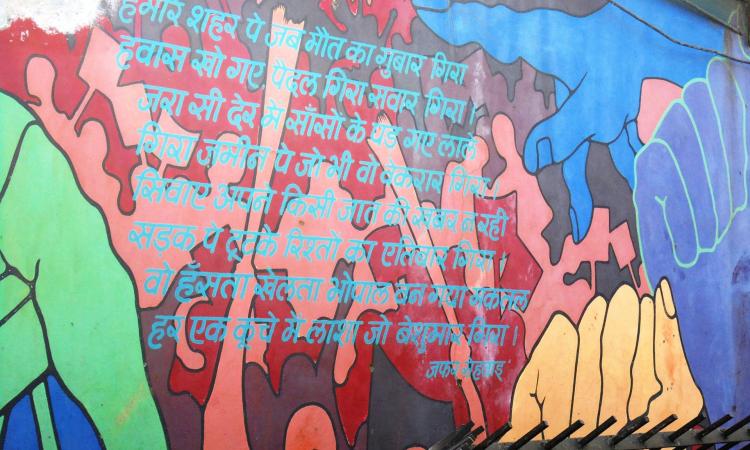 हमारे शहर पे जब मौत का गुबार गिरा
हवास खो गए पैदल गिरा सवार गिरा।
जरा सी देर में साँसों के पड़ गए लाले
गिरा जमीन पे जो भी वो बेकरार गिरा।
सिवाए अपने किसी जात की खबर न रही
सड़क पे टूटके रिश्तों का एतिबार गिरा।
वो हँसता खेलता भोपाल बन गया मकतल
हर एक कूचे में लाशा जो बेशुमार गिरा।
जफर